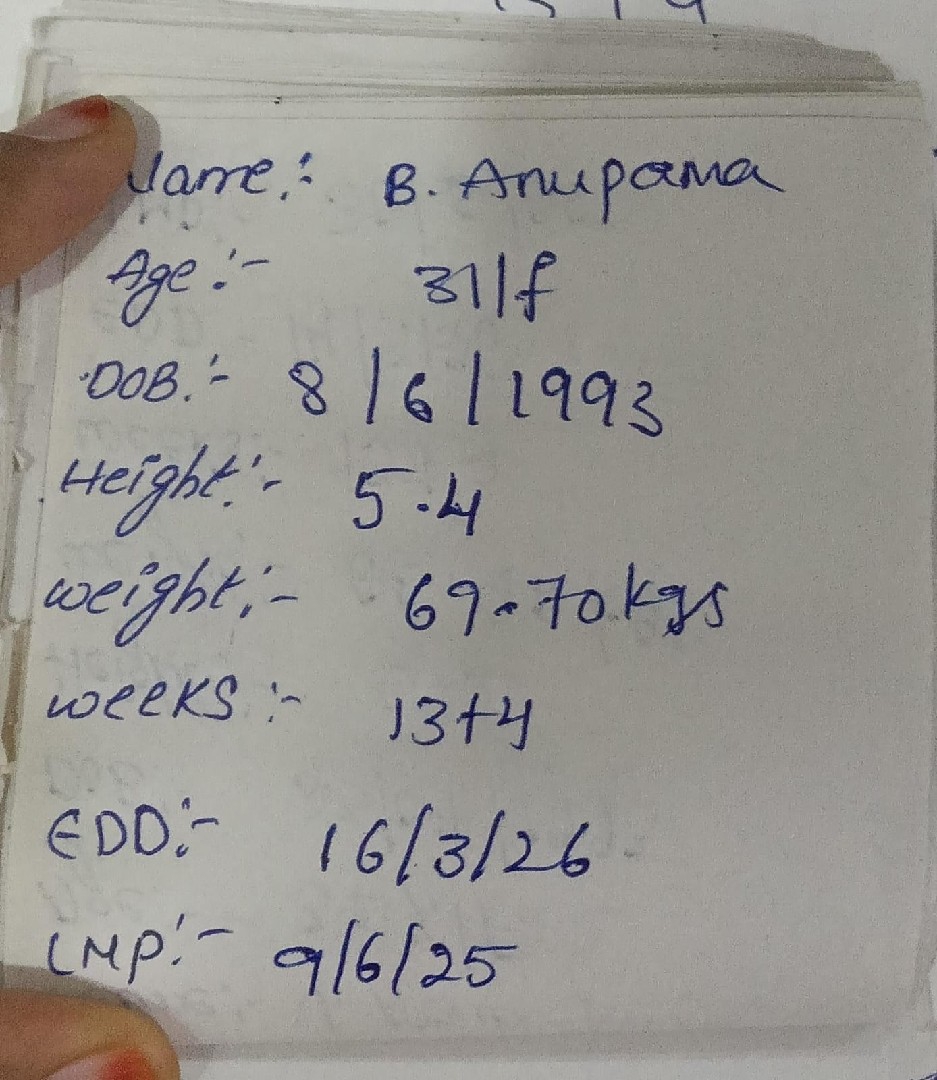 Name :- B. Anupama
Age :- 31/f
DOB :- 8/6/1993
Height :- 5.4
weight :- 69.70kgs
weeks :- 13+4
EDD :- 16/3/26
LMP :- 9/6/25